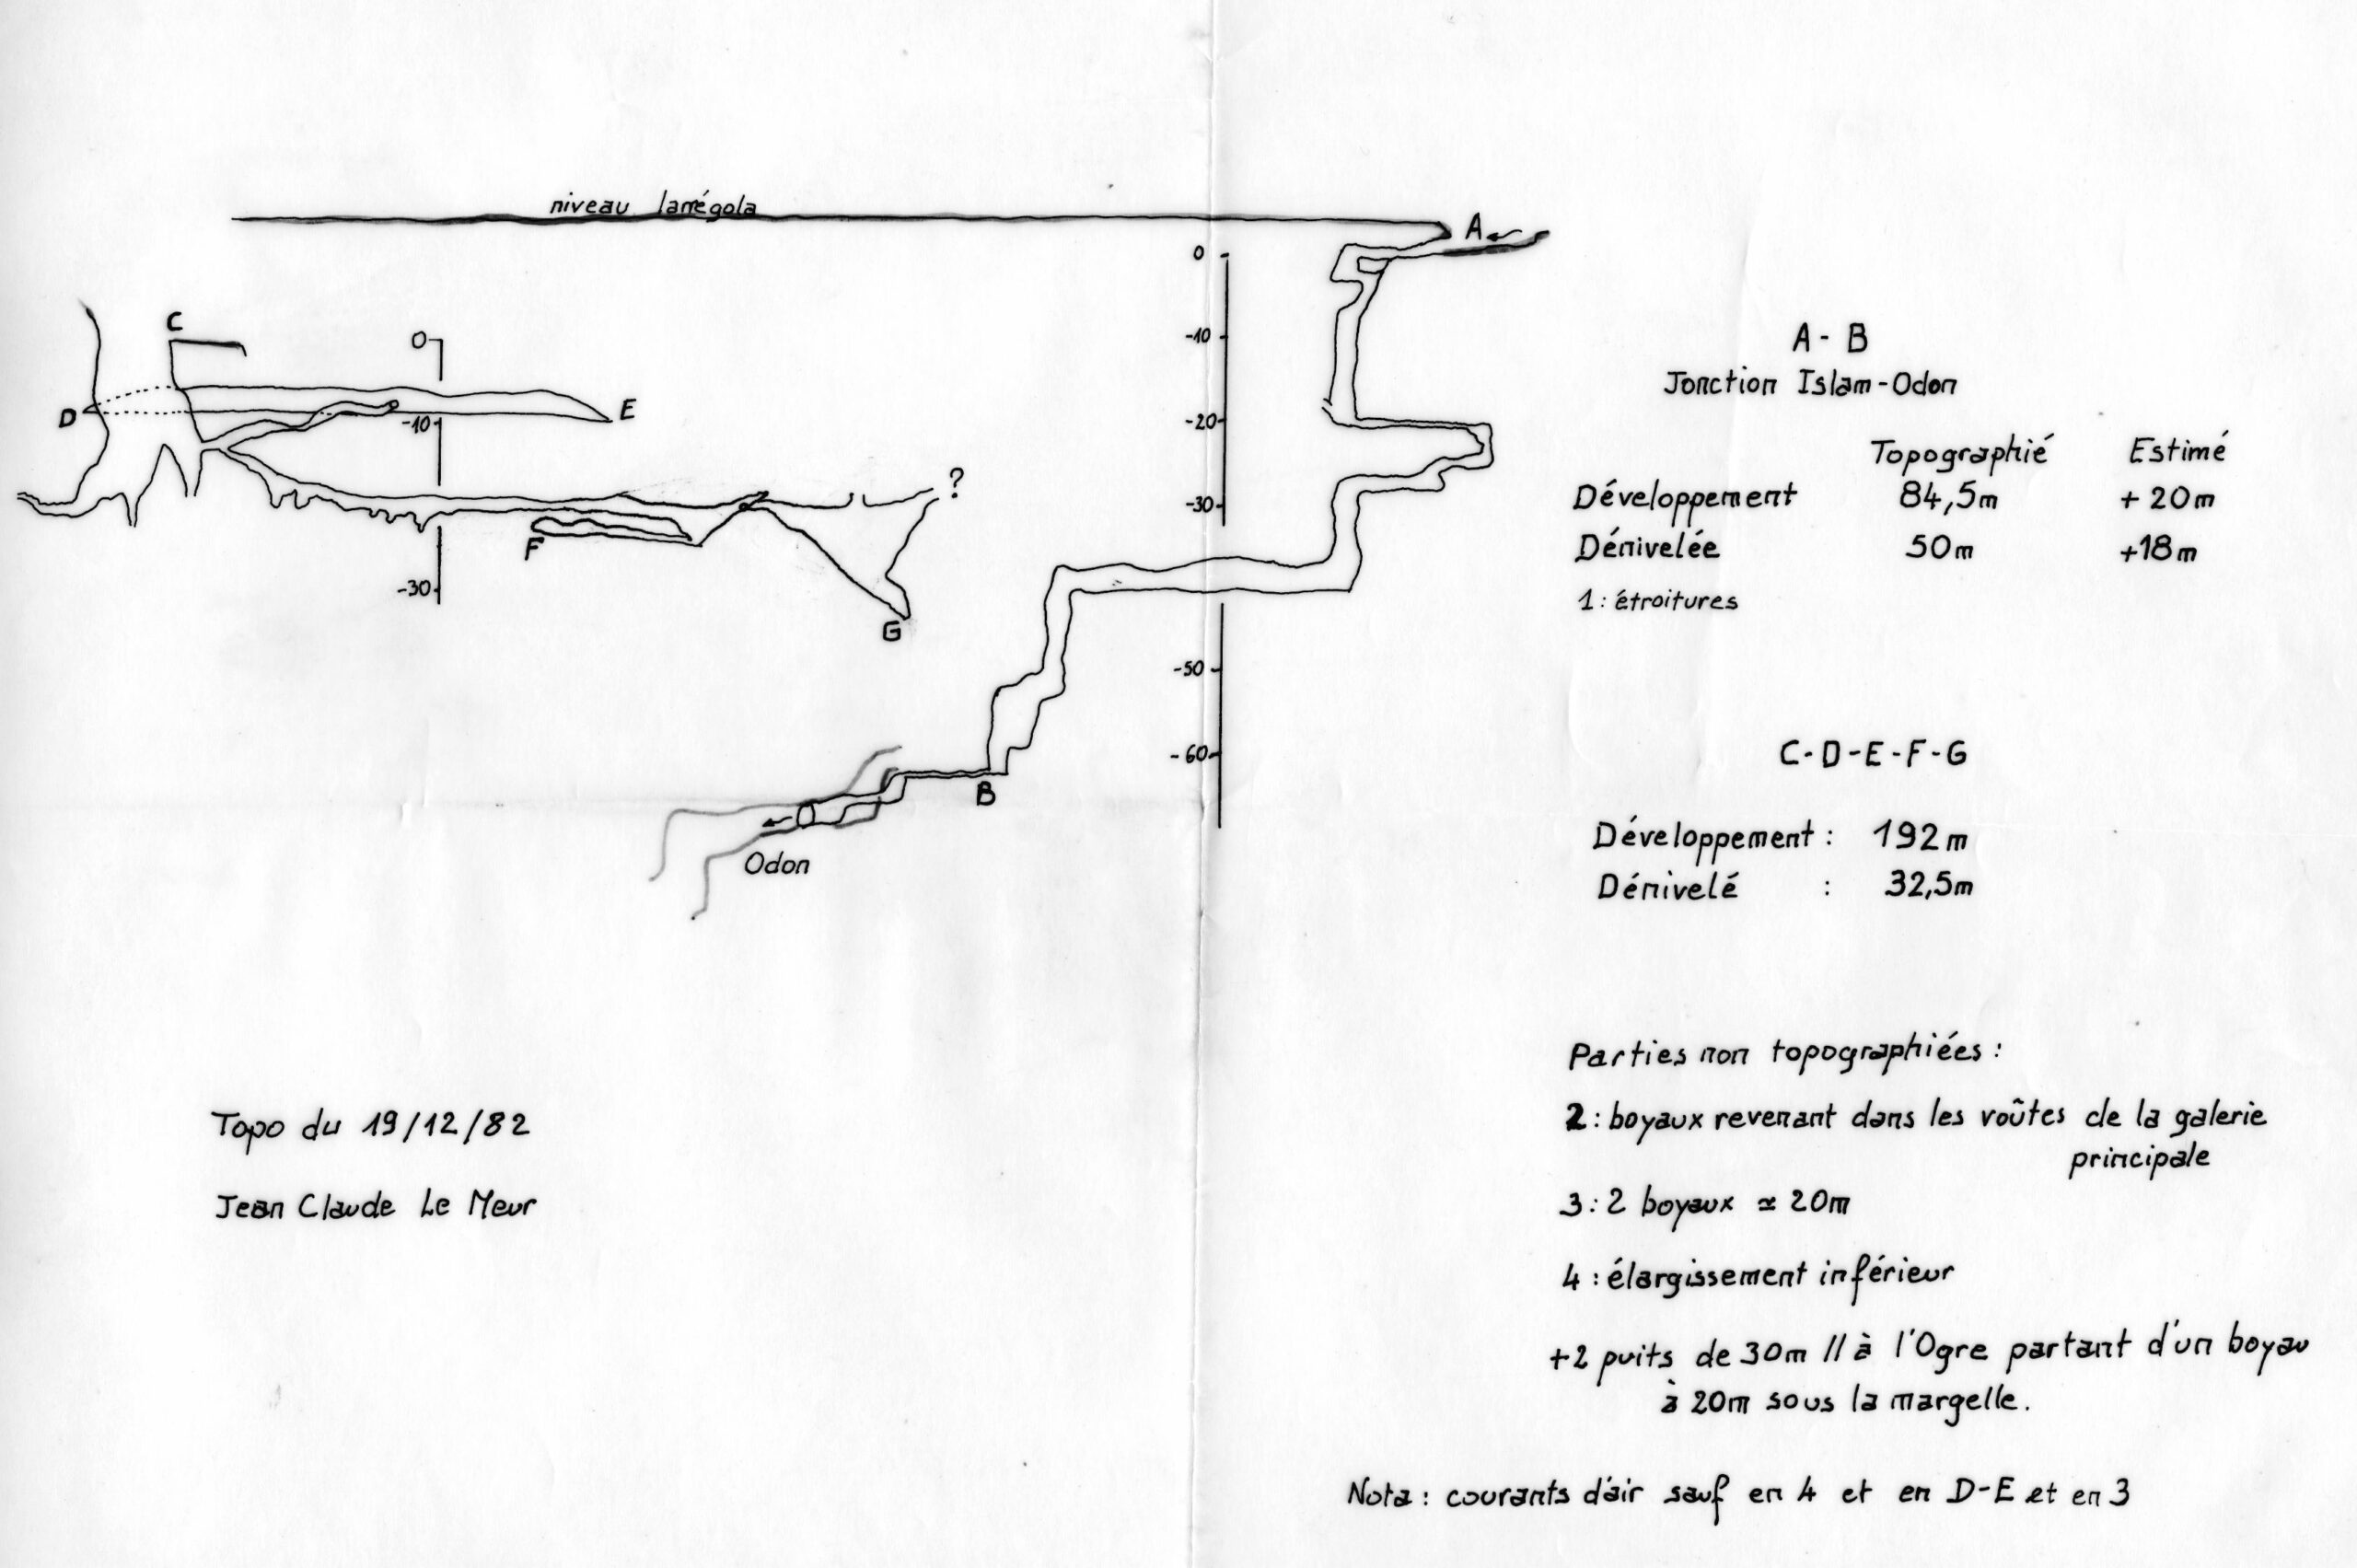 niveau larrégola
A
0
-10
-20
-30
-50
-60
C
0
D
E
-10
?
F
-30
G
B
Odon
A - B
Jonction Islam-Odon
Topographié Estimé
Développement 84,5m + 20m
Dénivelée 50m +18m
1: étroitures
C-D-E-F-G
Développement : 192m
Dénivelé : 32,5m
Topo du 19/12/82
Jean Claude Le Meur
Parties non topographiées :
2: boyaux revenant dans les voûtes de la galerie
principale
3: 2 boyaux ≃ 20m
4: élargissement inférieur
+2 puits de 30m // à l'Ogre partant d'un boyau
à 20m sous la margelle.
Nota: courants d'air sauf en 4 et en D-E et en 3